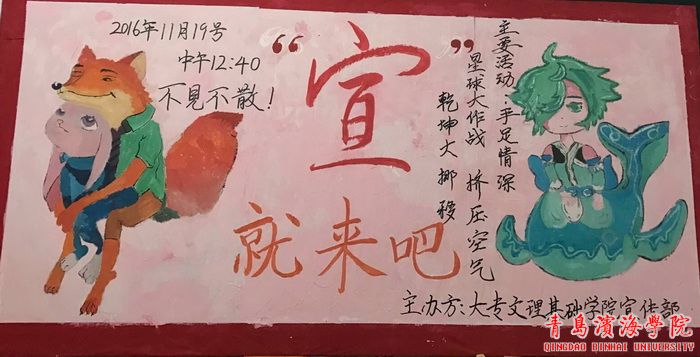 2016年11月19号
中午12:40
不见不散!
“宣”
就来吧
主要活动:手足情深
星球大作战 挤压空气
乾坤大挪移
主办方:大专文理基础学院宣传部
青島濱海學院
QINGDAO BINHAI UNIVERSITY